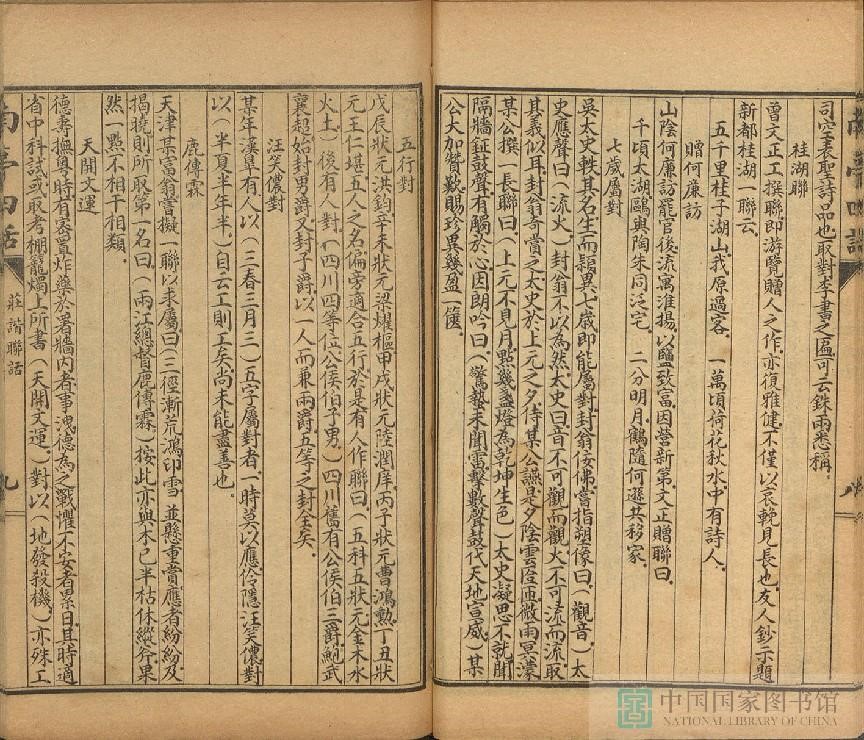 司空表聖詩品也取對李書之匾可云銖兩悉稱
桂湖聯
曾文正工撰聯即游覽贈人之作亦復雅健不僅以哀輓見長也友人鈔示題
新都桂湖一聯云
五千里桂子湖山我原過客　一萬頃荷花秋水中有詩人
贈何廉訪
山陰何廉訪罷官後流寓淮揚以鹽致富因營新第文正贈聯曰
千頃太湖鷗與陶朱同泛宅　二分明月鶴隨何遜共移家
七歲屬對
吳太史軼其名生而穎異七歲即能屬對封翁佞佛嘗指塑像曰（觀音）太
史應聲曰（流火）封翁不以為然太史曰音不可觀而觀火不可流而流取
其義似耳封翁奇賞之太史於上元之夕侍某公讌是夕陰雲匼匝微雨冥濛
某公撰一長聯曰（上元不見月點幾盞燈為乾坤生色）太史凝思不就聞
隔牆鉦鼓聲有觸於心因朗吟曰（驚蟄未聞雷擊數聲鼓代天地宣威）某
公大加贊歎賜珍異幾盈一篋
五行對
戊辰狀元洪鈞辛未狀元梁燿樞甲戌狀元陸潤庠丙子狀元曹鴻勳丁丑狀
元王仁堪五人之名偏旁適合五行於是有人作聯曰（五科五狀元金木水
火土）後有人對（四川四等位公侯伯子男）四川舊有公侯伯三爵鮑武
襄超始封男爵又封子爵以一人而兼兩爵五等之封全矣
汪笑儂對
某年漢皋有人以（三春三月三）五字屬對者一時莫以應伶隱汪笑儂對
以（半夏半年半）自云工則工矣尚未能盡善也
鹿傳霖
天津某富翁嘗擬一聯以求屬曰（三徑漸荒鴻印雪）並懸重賞應者紛紛及
揭曉則所取第一名曰（兩江總督鹿傳霖）按此亦與木已半枯休縱斧果
然一點不相干相類
天開文運
德壽撫粵時有密置炸藥於署牆內者事洩德為之戰懼不安者累日且時適
省中科試或取考棚籠燭上所書（天開文運）對以（地發殺機）亦殊工
莊諧聯話
九
中国国家图书馆
NATIONAL LIBRARY OF CHINA